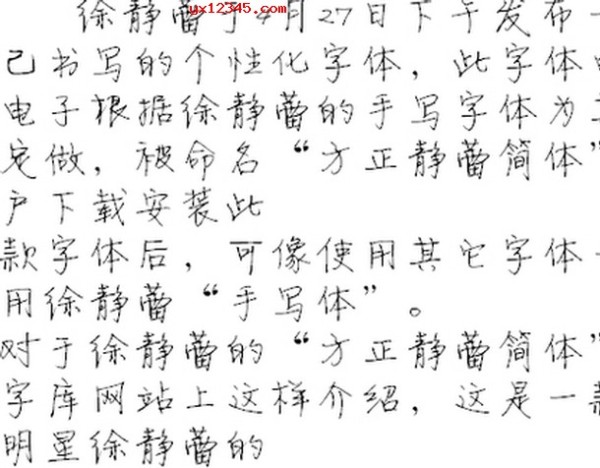 yx12345.com
徐静蕾于4月27日下午发布
己书写的个性化字体，此字体
电子根据徐静蕾的手写字体为
定做，被命名“方正静蕾简体”
户下载安装此
款字体后，可像使用其它字体
用徐静蕾“手写体”。
对于徐静蕾的“方正静蕾简体”
字库网站上这样介绍，这是一款
明星徐静蕾的